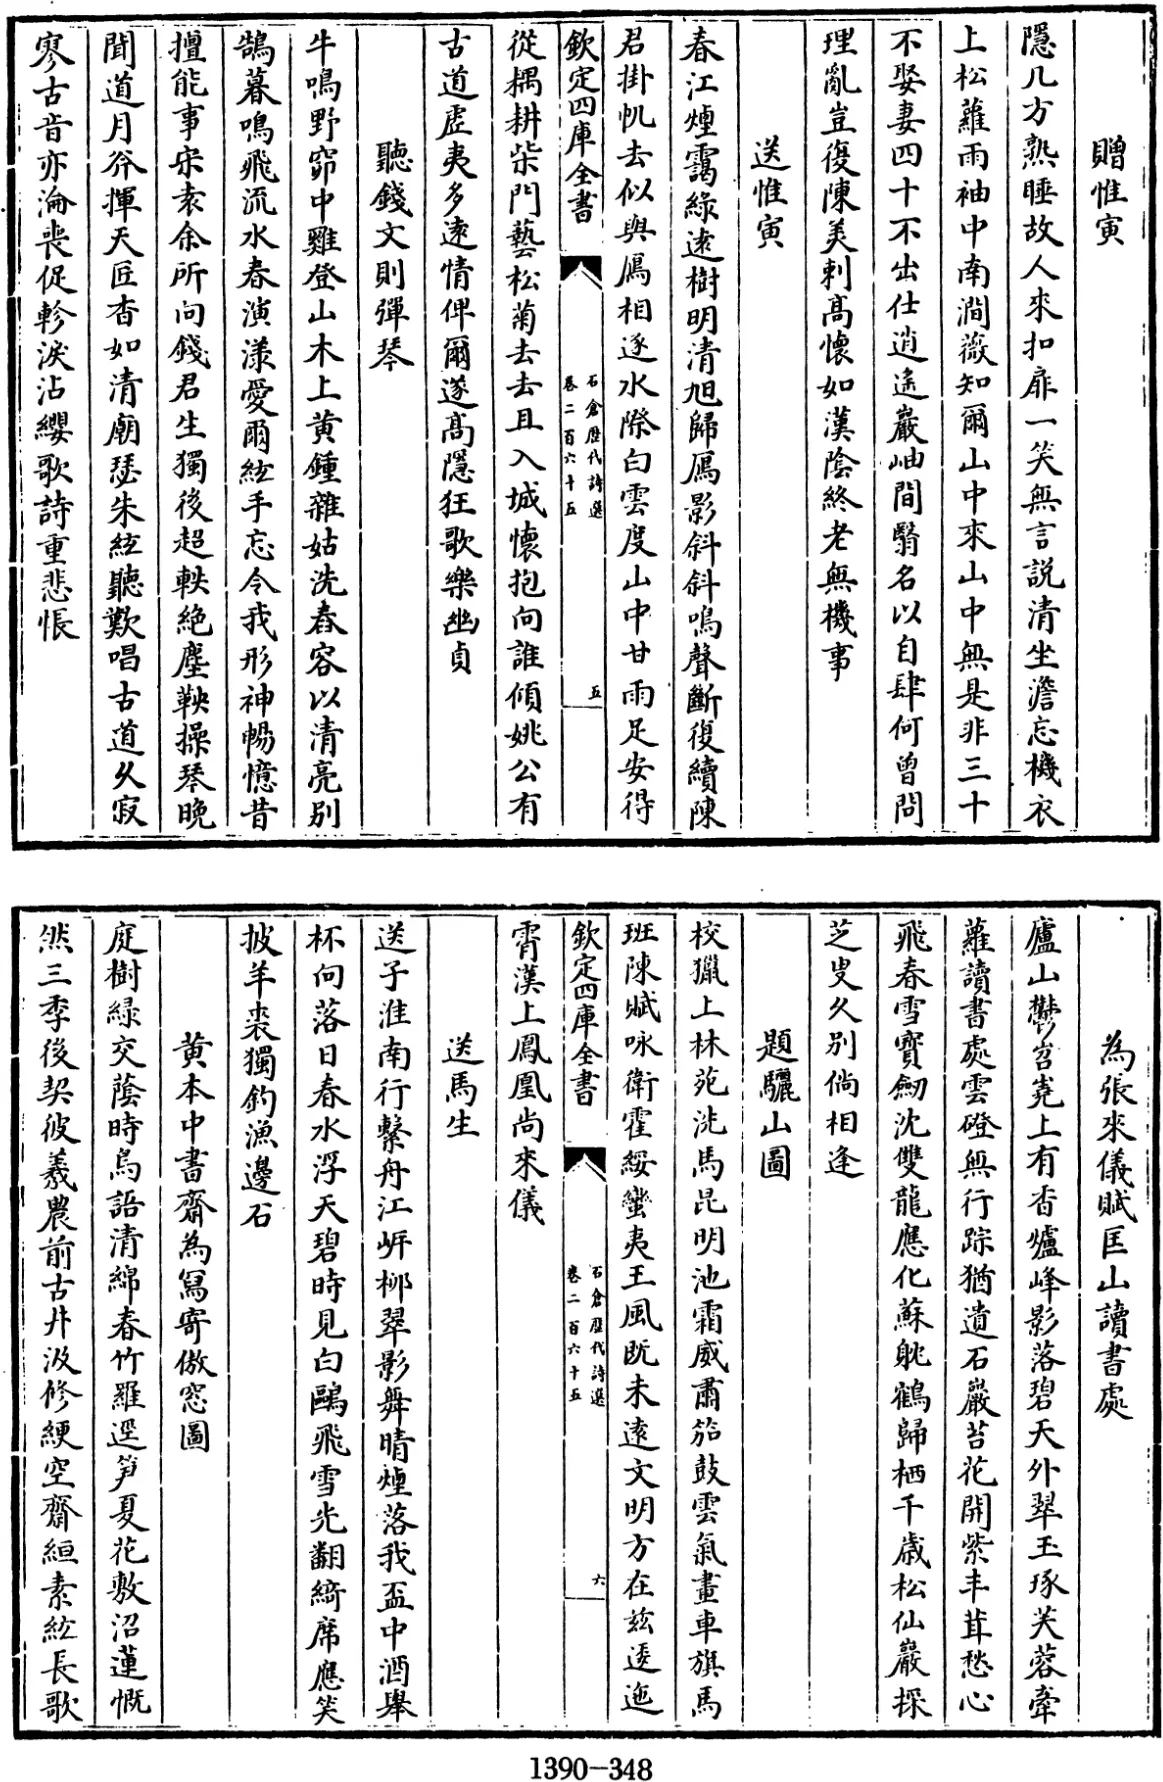 贈惟寅
隱几方熟睡故人來扣扉一笑無言説清坐澹忘機衣
上松蘿雨袖中南澗薇知爾山中來山中無是非三十
不娶妻四十不出仕逍遙巖岫間翳名以自肆何曾問
理亂豈復陳美刺高懷如漢陰終老無機事
送惟寅
春江煙靄緑遠樹明清旭歸鴈影斜斜鳴聲斷復續陳
君掛帆去似與鴈相逐水際白雲度山中甘雨足安得
欽定四庫全書
石倉歴代詩選
卷二百六十五
五
從耦耕柴門藝松菊去去且入城懷抱向誰傾姚公有
古道虛夷多遠情俾爾遂高隱狂歌樂幽貞
聽錢文則彈琴
牛鳴野窌中雞登山木上黄鍾雜姑洗舂容以清亮別
鵠暮鳴飛流水春演漾愛爾絃手忘令我形神暢憶昔
擅能事宋袁余所向錢君生獨後超軼絶塵鞅操琴晩
聞道月斧揮天匠杳如清廟瑟朱絃聽歎唱古道久寂
寥古音亦淪喪促軫淚沾纓歌詩重悲悵
為張來儀賦匡山讀書處
廬山鬱岧嶤上有香爐峰影落碧天外翠玉琢芙蓉牽
蘿讀書處雲磴無行踪猶遺石巖苔花開紫丰茸愁心
飛春雪寶劒沈雙龍應化蘇躭鶴歸栖千歳松仙巖採
芝叟久別倘相逢
題驪山圖
校獵上林苑洗馬昆明池霜威肅笳鼓雲氣畫車旗馬
班陳賦咏衛霍綏蠻夷王風既未遠文明方在兹逶迤
欽定四庫全書
石倉歴代詩選
卷二百六十五
六
霄漢上鳳凰尚來儀
送馬生
送子淮南行繫舟江岸柳翠影舞晴煙落我盃中酒舉
杯向落日春水浮天碧時見白鷗飛雪光翻綺席應笑
披羊裘獨釣漁邊石
黄本中書齋為寫寄傲窓圖
庭樹緑交蔭時鳥語清綿春竹羅逕笋夏花敷沼蓮慨
然三季後契彼羲農前古井汲修綆空齋絙素絃長歌
1390-348